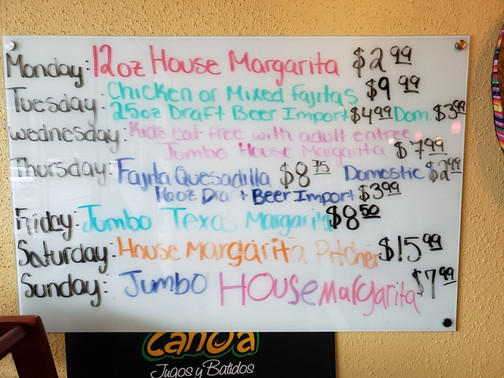 Monday: 12oz House Margarita $2.99
Tuesday: Chicken or Mixed Fajitas $9.99
25oz Draft Beer Import $4.99 Dom. $3.99
wednesday: Kids eat free with adult entree
Jumbo House Margarita $7.99
Thursday: Fajita Quesadilla $8.75 Domestic $2.99
16oz Draft Beer Import $3.99
Friday: Jumbo Texas Margarita $8.50
Saturday: House Margarita Pitcher $15.99
Sunday: Jumbo House Margarita $7.99
Canoa
Jugos y Batidos